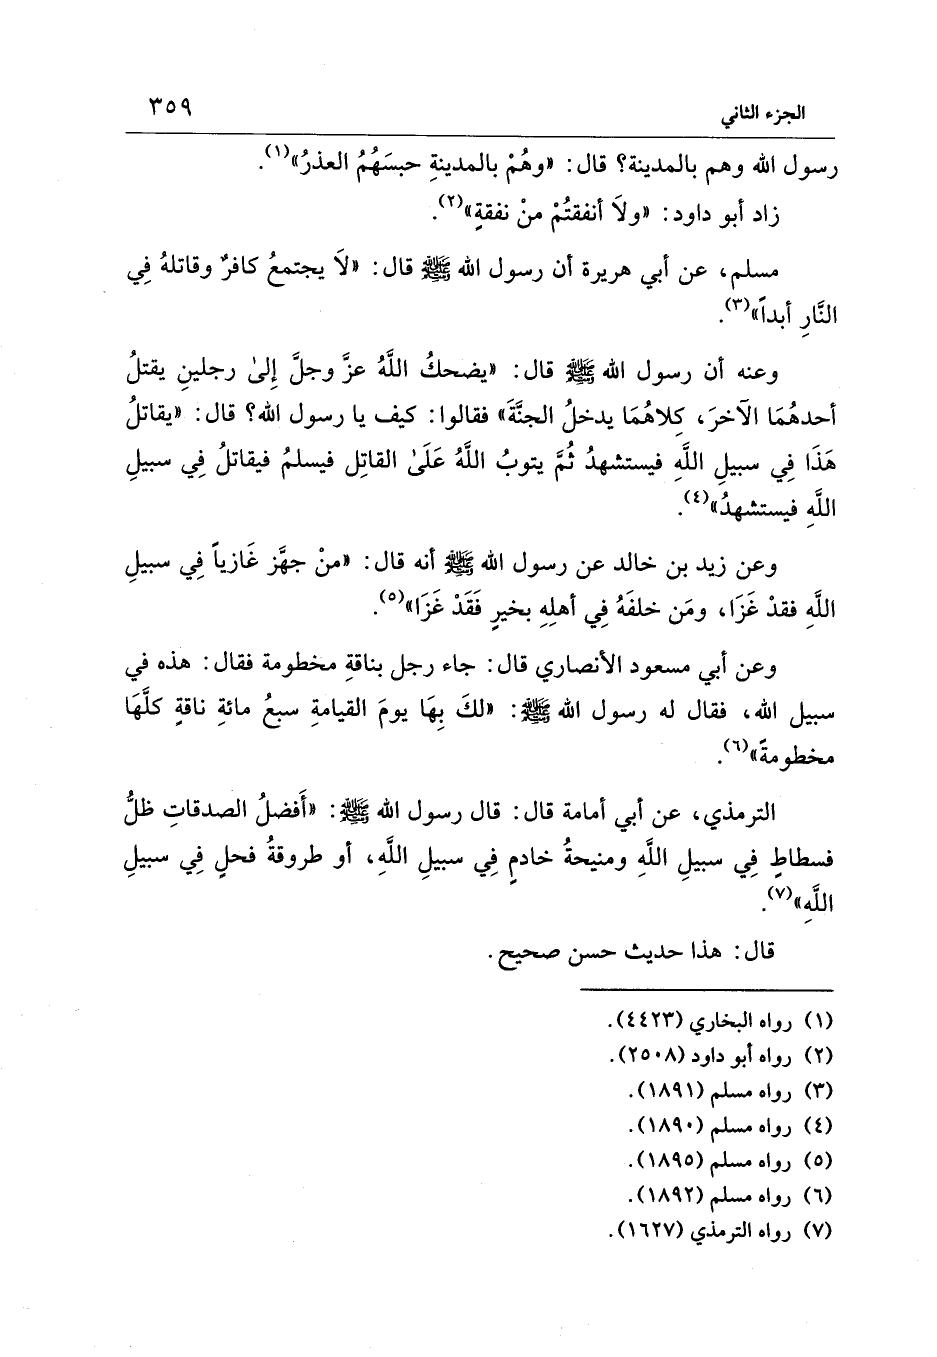 الجزء الثاني ٣٥٩
رسول الله وهم بالمدينة؟ قال: «وهُمْ بالمدينةِ حبسَهُمُ العذرُ»(١).
زاد أبو داود: «ولاَ أنفقتُمْ منْ نفقةٍ»(٢).
مسلم، عن أبي هريرة أن رسول الله ﷺ قال: «لاَ يجتمعُ كافرٌ وقاتلهُ فِي
النَّارِ أبداً»(٣).
وعنه أن رسول الله ﷺ قال: «يضحكُ اللَّهُ عزَّ وجلَّ إِلىٰ رجلينِ يقتلُ
أحدهُمَا الآخرَ، كِلاهُمَا يدخلُ الجنَّةَ» فقالوا: كيف يا رسول الله؟ قال: «يقاتلُ
هَذَا فِي سبيلِ اللَّهِ فيستشهدُ ثُمَّ يتوبُ اللَّهُ عَلَىٰ القاتِلِ فيسلمُ فيقاتلُ فِي سبيلِ
اللَّهِ فيستشهدُ»(٤).
وعن زيد بن خالد عن رسول الله ﷺ أنه قال: «منْ جهَّز غَازياً فِي سبيلِ
اللَّهِ فقدْ غَزَا، ومَن خلفَهُ فِي أهلِهِ بخيرٍ فَقَدْ غَزَا»(٥).
وعن أبي مسعود الأنصاري قال: جاء رجل بناقةٍ مخطومة فقال: هذه في
سبيل الله، فقال له رسول الله ﷺ: «لكَ بِهَا يومَ القيامةِ سبعُ مائةِ ناقةٍ كلَّهَا
مخطومةً»(٦).
الترمذي، عن أبي أمامة قال: قال رسول الله ﷺ: «أَفضلُ الصدقاتِ ظلُّ
فسطاطٍ فِي سبيلِ اللَّهِ ومنيحةُ خادمٍ فِي سبيلِ اللَّهِ، أو طروقةُ فحلٍ فِي سبيلِ
اللَّهِ»(٧).
قال: هذا حديث حسن صحيح.
(١) رواه البخاري (٤٤٢٣).
(٢) رواه أبو داود (٢٥٠٨).
(٣) رواه مسلم (١٨٩١).
(٤) رواه مسلم (١٨٩٠).
(٥) رواه مسلم (١٨٩٥).
(٦) رواه مسلم (١٨٩٢).
(٧) رواه الترمذي (١٦٢٧).